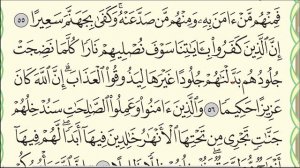 فَمِنْهُم مَّنْ ءَامَنَ بِهِۦ وَمِنْهُم مَّن صَدَّ عَنْهُ ۚ وَكَفَىٰ بِجَهَنَّمَ سَعِيرًا ٥٥
إِنَّ ٱلَّذِينَ كَفَرُوا۟ بِـَٔايَـٰتِنَا سَوْفَ نُصْلِيهِمْ نَارًا كُلَّمَا نَضِجَتْ
جُلُودُهُم بَدَّلْنَـٰهُمْ جُلُودًا غَيْرَهَا لِيَذُوقُوا۟ ٱلْعَذَابَ ۗ إِنَّ ٱللَّهَ كَانَ
عَزِيزًا حَكِيمًا ٥٦ وَٱلَّذِينَ ءَامَنُوا۟ وَعَمِلُوا۟ ٱلصَّـٰلِحَـٰتِ سَنُدْخِلُهُمْ
جَنَّـٰتٍ تَجْرِى مِن تَحْتِهَا ٱلْأَنْهَـٰرُ خَـٰلِدِينَ فِيهَآ أَبَدًا ۖ لَّهُمْ فِيهَآ